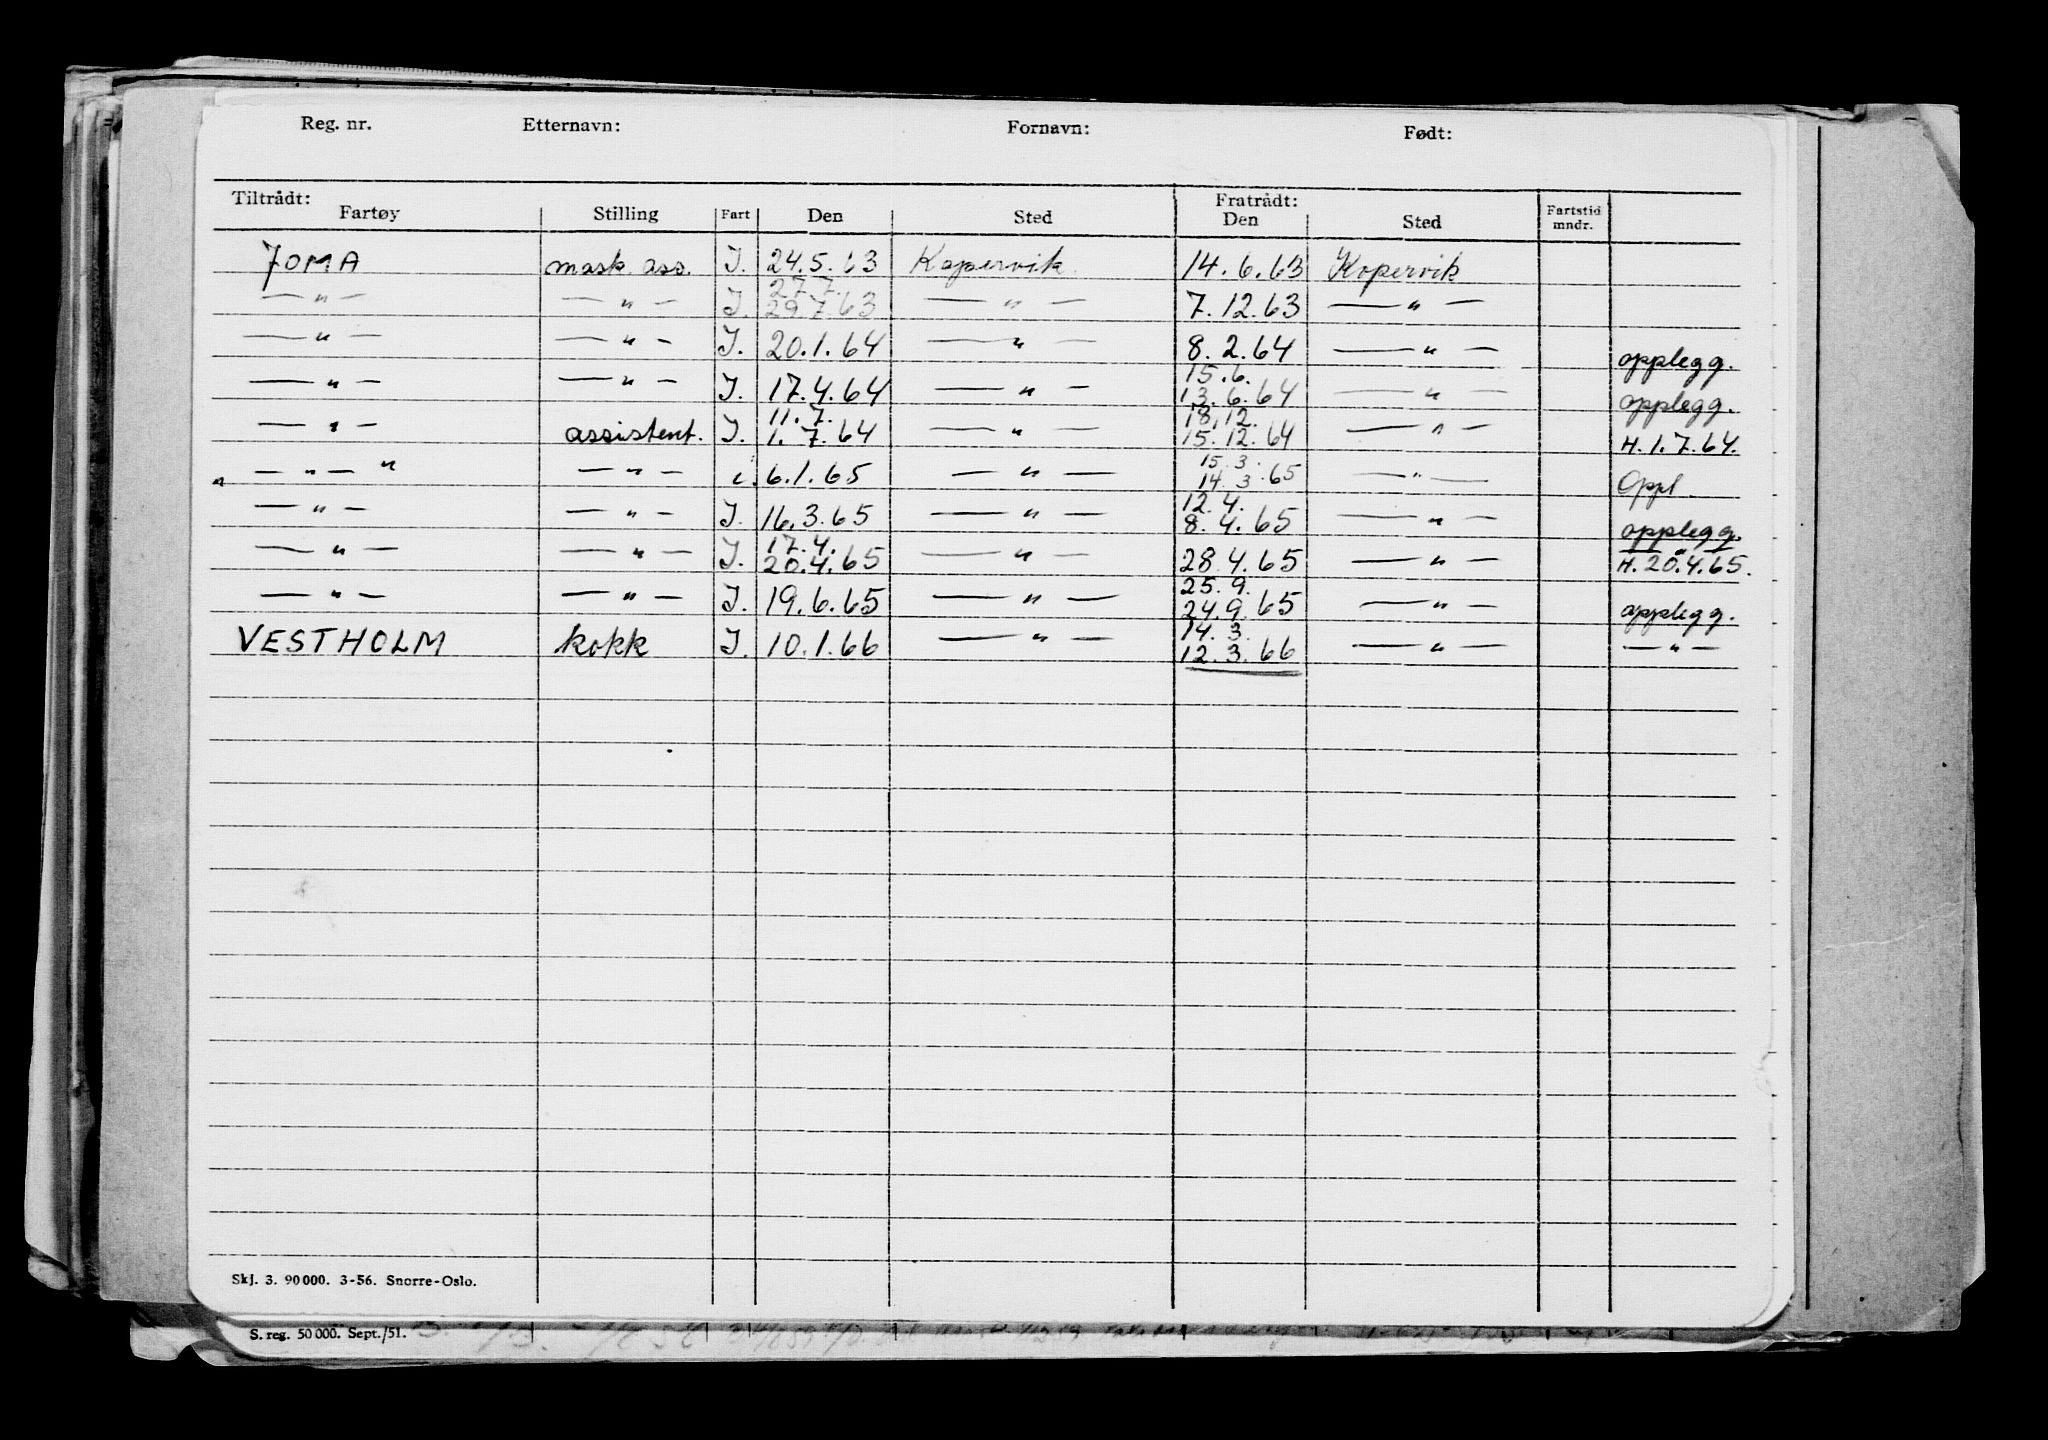 Reg. nr. Etternavn: Fornavn: Født:
Tiltrådt: Fratrådt:
Fartøy Stilling Fart Den Sted Den Sted Fartstid mndr.
JOMA mask. ass. I. 24.5.63 Kopervik 14.6.63 Kopervik
27.7.
— " — — " — I. 29.7.63 — " — 7.12.63 — " —
— " — — " — I. 20.1.64 — " — 8.2.64 — " — opplegg.
15.6.
— " — — " — I. 17.4.64 — " — 13.6.64 — " — opplegg.
11.7. 18.12.
— " — assistent. I. 1.7.64 — " — 15.12.64 — " — H.1.7.64.
15.3.
" — " — " — " — i. 6.1.65 — " — 14.3.65 — " — Oppl.
12.4.
— " — — " — I. 16.3.65 — " — 8.4.65 — " — opplegg.
17.4.
— " — — " — I. 20.4.65 — " — 28.4.65 — " — H.20.4.65.
25.9.
— " — — " — I. 19.6.65 — " — 24.9.65 — " — opplegg.
14.3.
VESTHOLM kokk I. 10.1.66 — " — 12.3.66 — " — — " —
Skj. 3. 90000. 3-56. Snorre-Oslo.
S. reg. 50000. Sept./51.